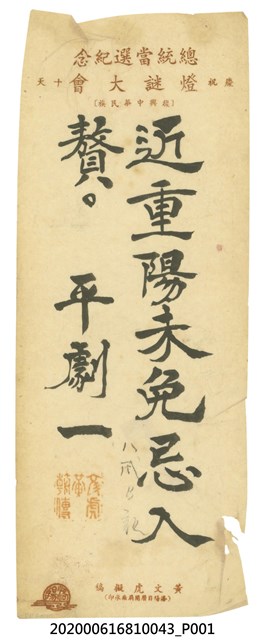 總統當選紀念
慶祝燈謎大會十天
(復興中華民族)
近重陽未免忌入
贅。平劇一
黃文虎擬稿
202000616810043_P001